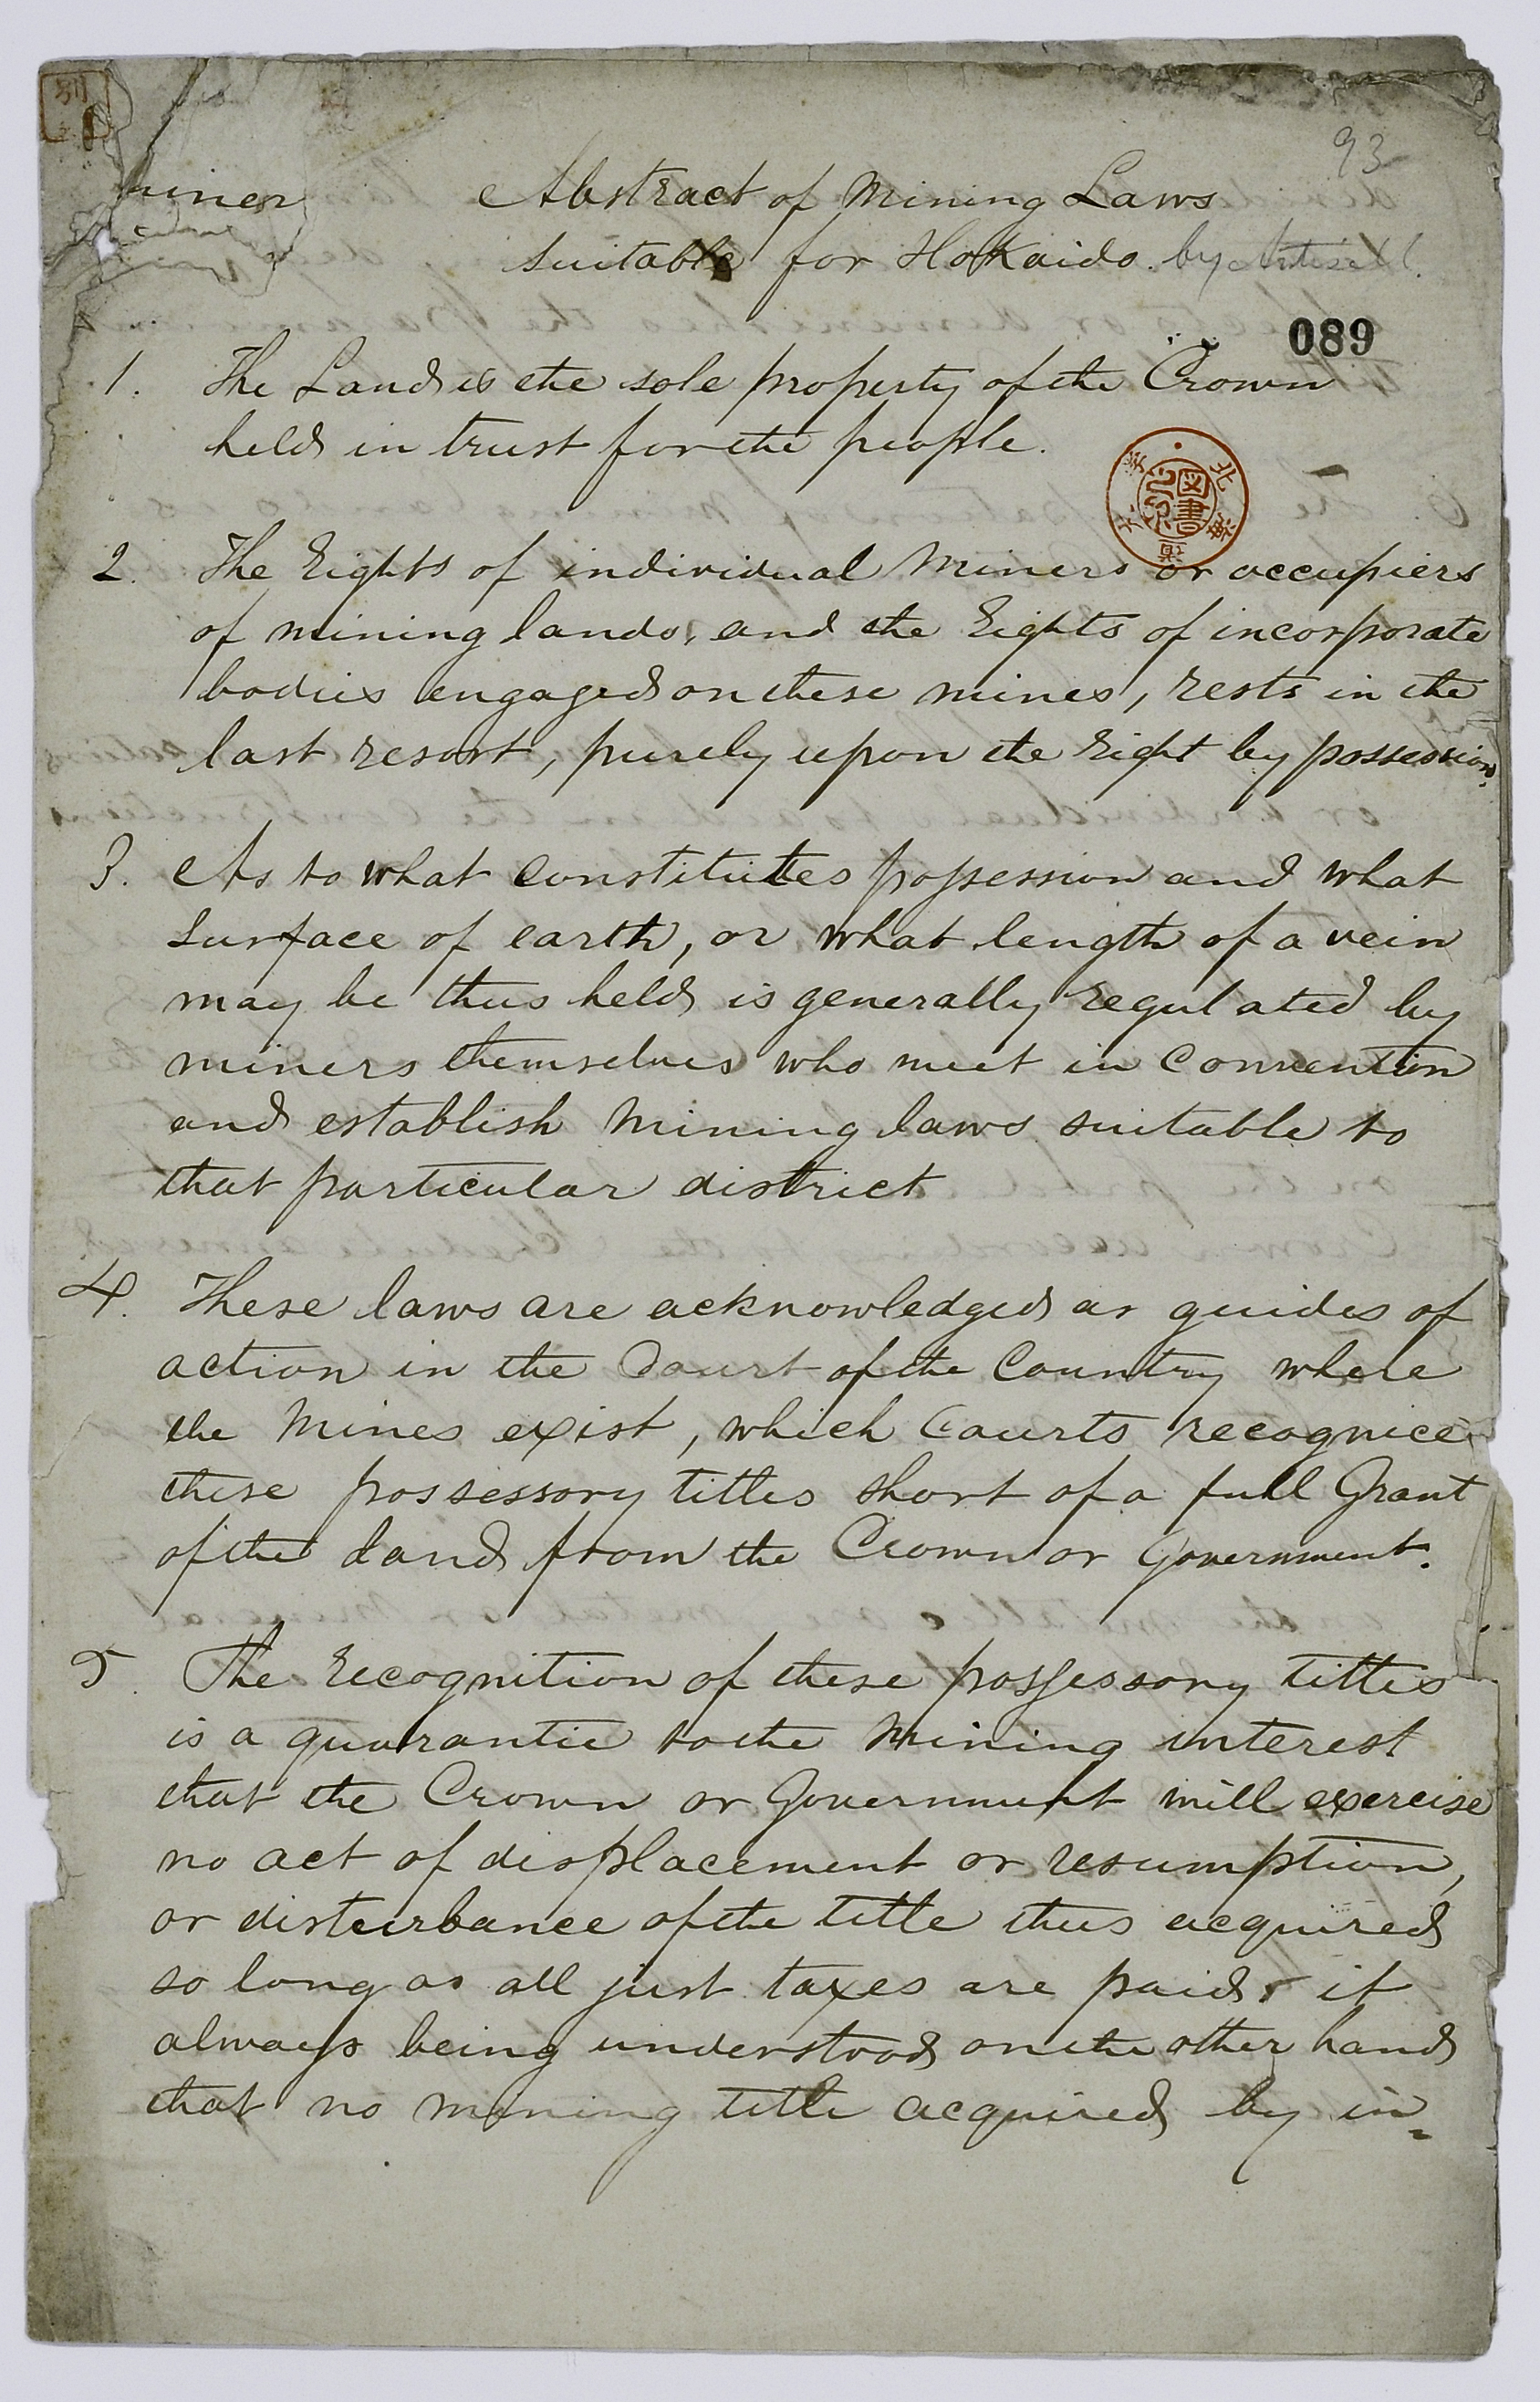 93
miner
Abstract of Mining Laws
suitable for Hokaido. by Antisell.
089
1. The Land is the sole property of the Crown
held in trust for the people.
北海道大學
圖書之印
2. The Rights of individual Miners or occupiers
of mining lands, and the Rights of incorporate
bodies engaged on these mines, rests in the
last resort, purely upon the right by possession.
3. As to what constitutes possession and what
surface of earth, or what length of a vein
may be thus held is generally regulated by
miners themselves who meet in Convention
and establish Mining laws suitable to
that particular district
4. These laws are acknowledged as guides of
action in the Court of the Country where
the Mines exist, which Courts recognice
these possessory titles short of a full Grant
of the land from the Crown or Government.
5. The recognition of these possessory titles
is a guarantie to the Mining interest
that the Crown or Government will exercise
no act of displacement or resumption,
or disturbance of the title thus acquired
so long as all just taxes are paid, it
always being understood on the other hand
that no mining title acquired by in=